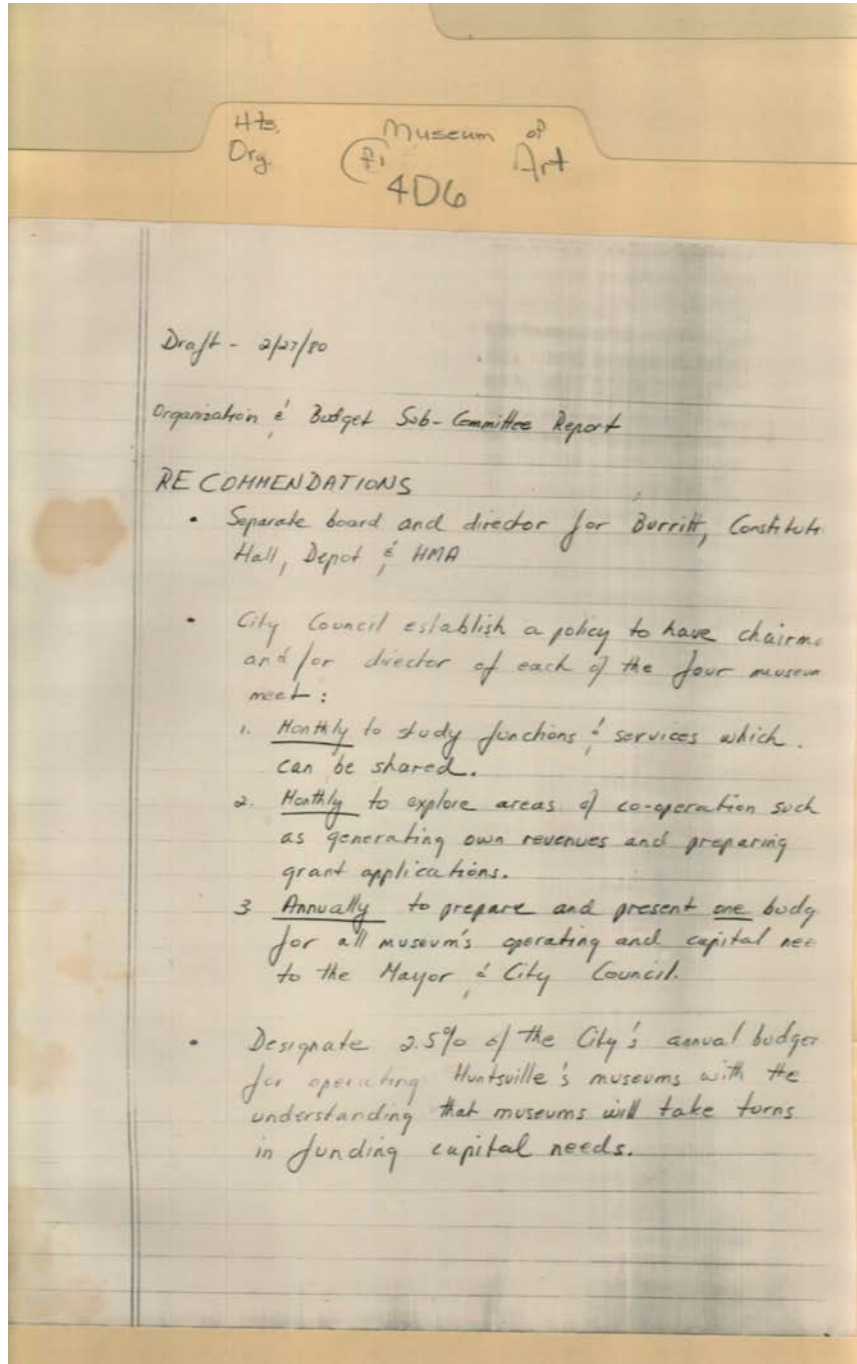 Hts, Museum of
Org. Art
4D6
Draft - 2/27/80
Organization & Budget Sub-Committee Report
RECOMMENDATIONS
• Separate board and director for Burritt, Constitut
Hall, Depot & HMA
• City Council establish a policy to have chairm
and/or director of each of the four museum
meet:
1. Monthly to study functions & services which
can be shared.
2. Monthly to explore areas of co-operation such
as generating own revenues and preparing
grant applications.
3 Annually to prepare and present one budg
for all museum's operating and capital nee
to the Mayor & City Council.
• Designate 2.5% of the City's annual budget
for operating Huntsville's museums with the
understanding that museums will take turns
in funding capital needs.